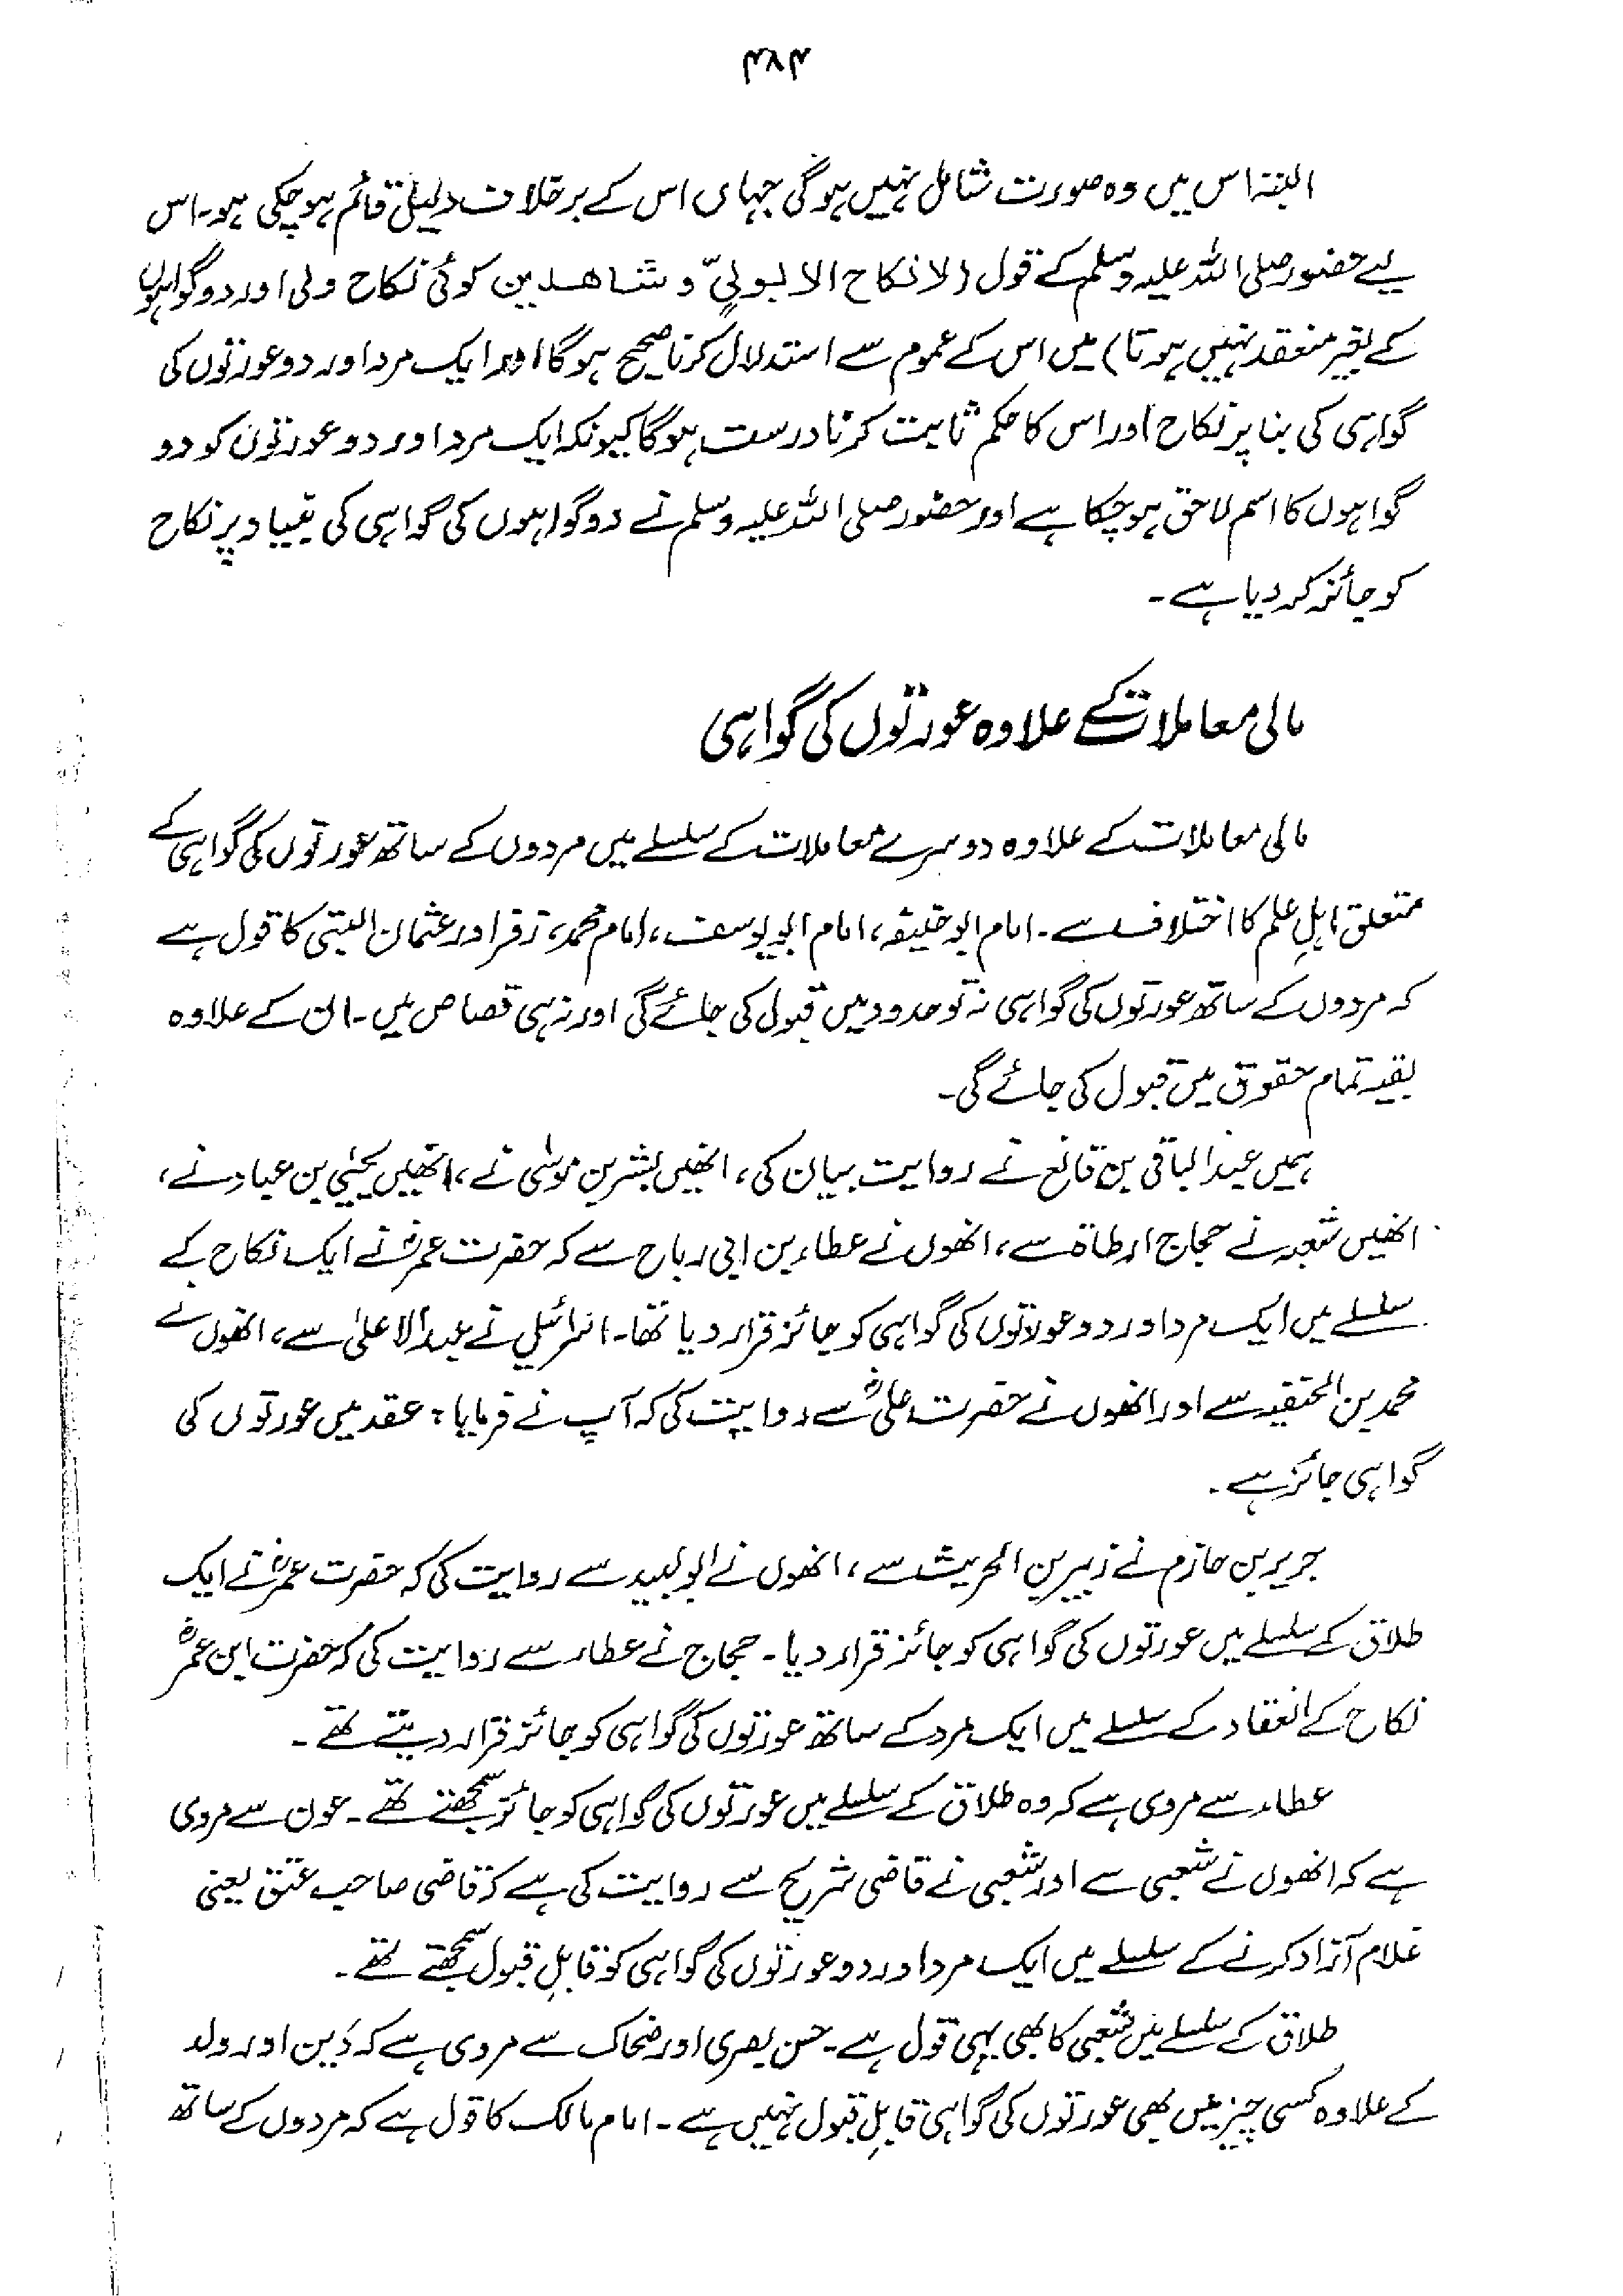 ۴۸۴
البتہ اس میں وہ صورت شامل نہیں ہوگی جہاں اس کے برخلاف دلیل قائم ہو چکی ہو۔ اس
لیے حضور صلی اللہ علیہ وسلم کے قول (لا نکاح الا بولیٍّ و شاھدین کوئی نکاح ولی اور دو گواہوں
کے بغیر منعقد نہیں ہوتا) میں اس کے عموم سے استدلال کرنا صحیح ہوگا اور ایک مرد اور دو عورتوں کی
گواہی کی بنا پر نکاح اور اس کا حکم ثابت کرنا درست ہوگا کیونکہ ایک مرد اور دو عورتوں کو دو
گواہوں کا اسم لاحق ہو چکا ہے اور حضور صلی اللہ علیہ وسلم نے دو گواہوں کی گواہی کی بنیاد پر نکاح
کو جائز کر دیا ہے۔
مالی معاملات کے علاوہ عورتوں کی گواہی
مالی معاملات کے علاوہ دوسرے معاملات کے سلسلے میں مردوں کے ساتھ عورتوں کی گواہی کے
متعلق اہلِ علم کا اختلاف ہے۔ امام ابو حنیفہ، امام ابو یوسف، امام محمد، زفر اور عثمان البتی کا قول ہے
کہ مردوں کے ساتھ عورتوں کی گواہی نہ تو حدود میں قبول کی جائے گی اور نہ ہی قصاص میں۔ ان کے علاوہ
بقیہ تمام حقوق میں قبول کی جائے گی۔
ہمیں عبدالباقی بن قانع نے روایت بیان کی، انھیں بشر بن موسیٰ نے، انھیں یحییٰ بن عباد نے،
انھیں شعبہ نے حجاج ارطاۃ سے، انھوں نے عطاء بن ابی رباح سے کہ حضرت عمرؓ نے ایک نکاح کے
سلسلے میں ایک مرد اور دو عورتوں کی گواہی کو جائز قرار دیا تھا۔ اسرائیل نے عبدالاعلیٰ سے، انھوں نے
محمد بن الحنفیہ سے اور انھوں نے حضرت علیؓ سے روایت کی کہ آپ نے فرمایا: عقد میں عورتوں کی
گواہی جائز ہے۔
جریر بن حازم نے زبیر بن الحریث سے، انھوں نے ابو لبید سے روایت کی کہ حضرت عمرؓ نے ایک
طلاق کے سلسلے میں عورتوں کی گواہی کو جائز قرار دیا۔ حجاج نے عطاء سے روایت کی کہ حضرت ابن عمرؓ
نکاح کے انعقاد کے سلسلے میں ایک مرد کے ساتھ عورتوں کی گواہی کو جائز قرار دیتے تھے۔
عطاء سے مروی ہے کہ وہ طلاق کے سلسلے میں عورتوں کی گواہی کو جائز سمجھتے تھے۔ عون سے مروی
ہے کہ انھوں نے شعبی سے اور شعبی نے قاضی شریح سے روایت کی ہے کہ قاضی صاحب عتق یعنی
غلام آزاد کرنے کے سلسلے میں ایک مرد اور دو عورتوں کی گواہی کو قابلِ قبول سمجھتے تھے۔
طلاق کے سلسلے میں شعبی کا بھی یہی قول ہے۔ حسن بصری اور ضحاک سے مروی ہے کہ دَین اور ولد
کے علاوہ کسی چیز میں بھی عورتوں کی گواہی قابلِ قبول نہیں ہے۔ امام مالک کا قول ہے کہ مردوں کے ساتھ